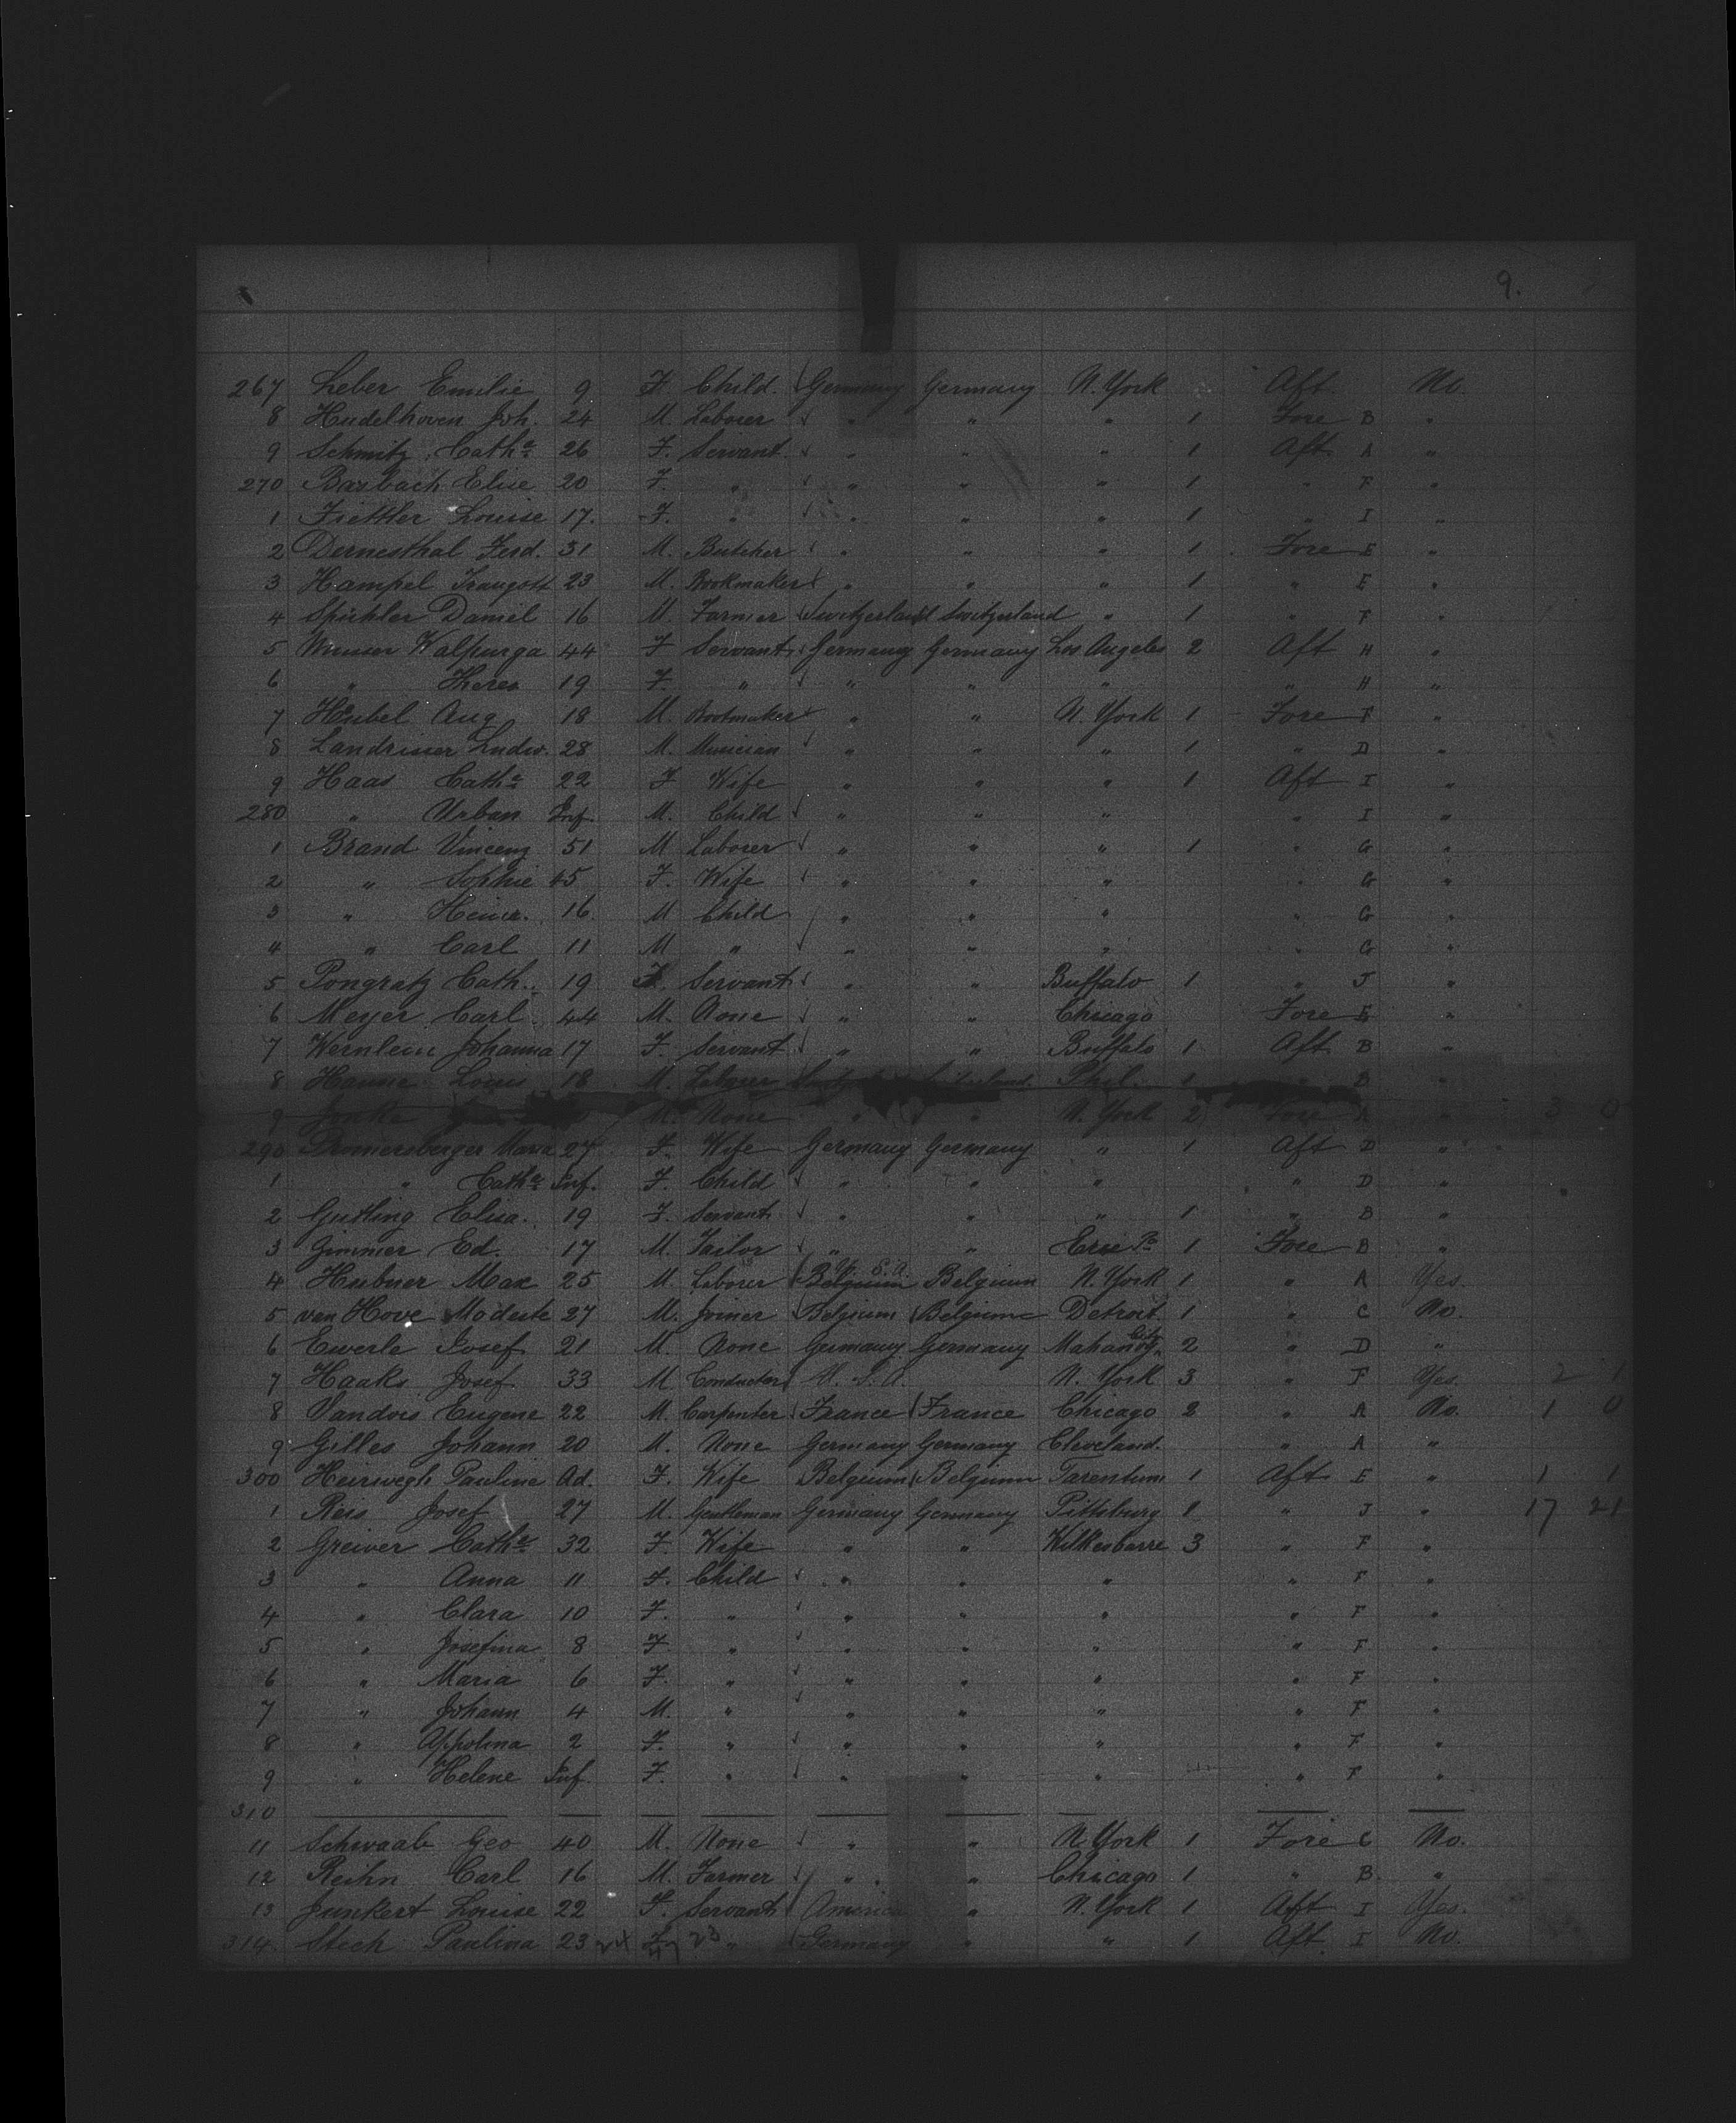 9.
267 Leber Emilie 9 F. Child. Germany Germany N. York Aft. No.
8 Hudelhoven Joh. 24 M. Laborer " " " 1 Fore B "
9 Schmitz Cath.a 26 F. Servant " " " 1 Aft A "
270 Barbach Elise 20 F. " " " " 1 " F "
1 Louise 17. F. " " " " 1 " I "
2 Dernesthal Ferd. 31 M. Butcher " " " 1 Fore E "
3 Hampel Traugott 23 M. Bookmaker " " " 1 " E "
4 Spühler Daniel 16 M Farmer Switzerland Switzerland " 1 " F "
5 Walpurga 44 F Servant Germany Germany Los Angeles 2 Aft H "
6 " Theres 19 F. " " " " " H "
7 Hubel Aug 18 M. Bootmaker " " N. York 1 Fore F "
8 Ludw. 28 M. Musician " " " 1 " D "
9 Haas Cath.a 22 F Wife " " " 1 Aft I "
280 " Urban Inf. M. Child " " " " I "
1 Brand Vincenz 51 M Laborer " " " 1 " G "
2 " Sophie 45 F. Wife " " " " G "
3 " Heinr. 16 M Child " " " " G "
4 " Carl 11 M " " " " " G "
5 Pongratz Cath. 19 F. Servant " " Buffalo 1 " J "
6 Meyer Carl 44 M. None " " Chicago Fore E "
7 Wernlein Johanna 17 F. Servant " " Buffalo 1 Aft B "
8 Louis 18 M. Laborer Phil. 1 " B "
9 M. None " " N. York 2 Fore A " 3 0
290 Maria 27 F. Wife Germany Germany " 1 Aft D "
1 " Cath.a Inf. F. Child " " " " D "
2 Gutling Elisa. 19 F. Servant " " " 1 " B "
3 Gimmer Ed. 17 M. Tailor " " Erie Pa 1 Fore B "
4 Hubner Max 25 M. Laborer U. S. A. Belgium Belgium N. York 1 " A Yes.
5 van Hove Modeste 27 M. Joiner Belgium Belgium Detroit. 1 " C No.
6 Ewerle Josef 21 M. None Germany Germany Mahanoy City 2 " D "
7 Haaks Josef. 33 M. Conductor U. S. A. N. York 3 " F Yes. 2 1
8 Vandois Eugene 22 M. Carpenter France France Chicago 2 " A No. 1 0
9 Gilles Johann 20 M. None Germany Germany Cleveland. " A "
300 Heirwegh Pauline Ad. F. Wife Belgium Belgium Tarentum 1 Aft E " 1 1
1 Reis Josef 27 M. Gentleman Germany Germany Pittsburg 1 " J " 17 21
2 Greiver Cath.a 32 F. Wife " " Wilkesbarre 3 " F "
3 " Anna 11 F. Child " " " " F "
4 " Clara 10 F. " " " " " F "
5 " Josefina 8 F " " " " " F "
6 " Maria 6 F. " " " " " F "
7 " Johann 4 M. " " " " " F "
8 " Appolina 2 F. " " " " " F "
9 " Helene Inf. F. " " " " " F "
310
11 Schwaab Geo 40 M. None " " N. York 1 Fore C No.
12 Reihn Carl 16 M. Farmer " " Chicago 1 " B "
13 Junkert Louise 22 F. Servant America " N. York 1 Aft I Yes.
314. Stech Paulina 23 24 F 47 23 " Germany " " 1 Aft. I No.